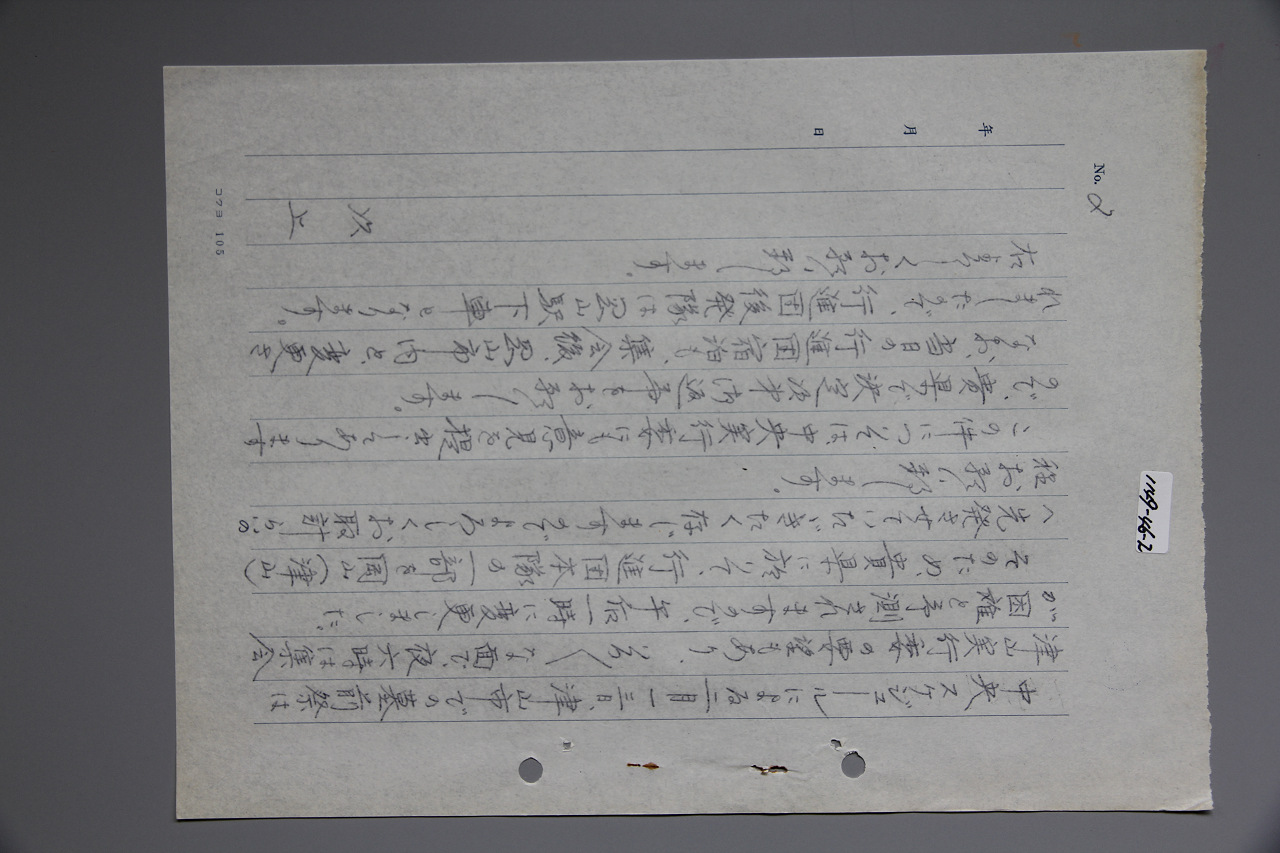 No. 2
年 月 日
中央スケジュールによる二月一三日、津山市での墓前祭は
津山実行委の要望もあり、いろ〱な面で、夜六時は集会
が困難と予測されますので、午后一時に変更しました。
そのため、貴県に於いて、行進団本隊の一部を岡山(津山)
へ先発させていただきたく存じますのでよろしくお取計らいの
程お願い致します。
この件については、中央実行委にも意見を提出してあります
ので、貴県で決定次才御返事をお願いします。
なお、当日の行進団宿泊も、集会後、岡山市内と、変更さ
れましたので、行進団後発隊は岡山駅下車となります。
右よろしくお願い致します。
以上
コクヨ 105
1159-46-2